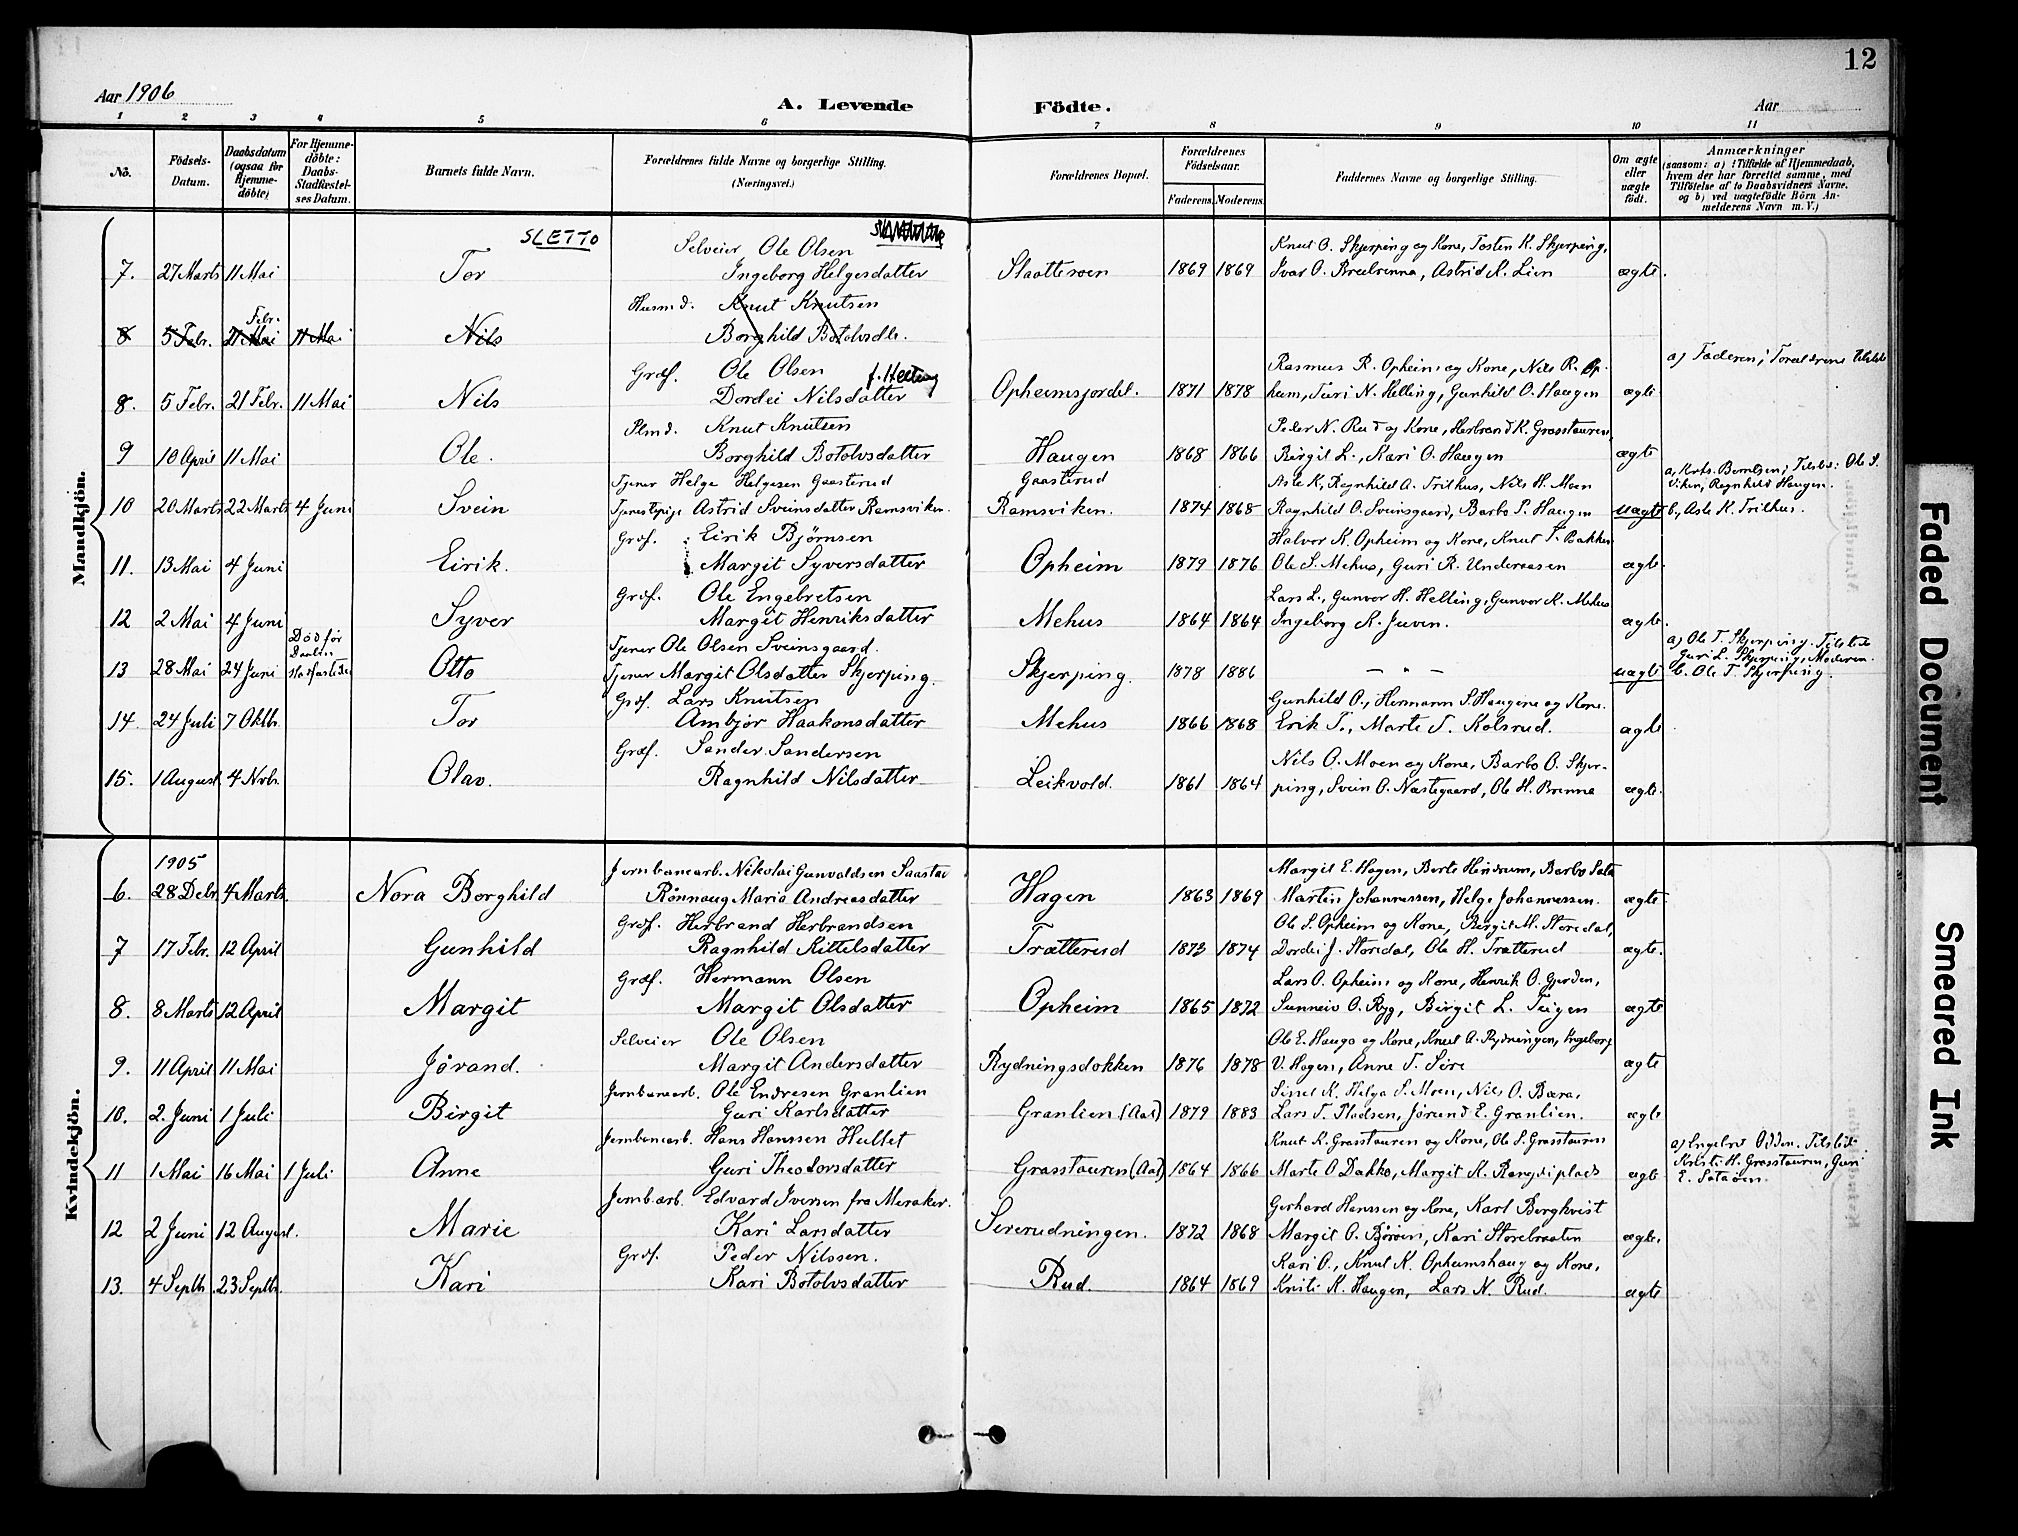 12
Aar 1906
A. Levende Födte.
Aar
1 2 3 4 5 6 7 8 9 10 11
No.
Födsels-Datum.
Daabsdatum (ogsaa for Hjemme-döbte)
For Hjemme-döbte: Daabs-Stadfæstel-ses Datum.
Barnets fulde Navn.
Forældrenes fulde Navne og borgerlige Stilling. (Næringsvei.)
Forældrenes Bopæl.
Forældrenes Födselsaar.
Faderens. Moderens.
Faddernes Navne og borgerlige Stilling.
Om ægte eller uægte födt.
Anmærkninger
(saasom: a) i Tilfælde af Hjemmedaab, hvem der har forrettet samme, med Tilföielse af to Daabsvidners Navne, og b) ved uægtefödte Börn An-melderens Navn m. V.)
Mandkjön.
SLETTO
Selveier Ole Olsen Knut O. Skjerping og Kone, Tosten K. Skjerping,
7. 27 Marts 11 Mai Tor Ingeborg Helgesdatter Slaatteroen 1869 1869 Ivar O. Breebrenna, Astrid K. Lien ægte.
Husmd. Knut Knutsen
Febr.
8 5 Febr. 21 Mai 11 Mai Nils Borghild Botolvsdtr.
Grdf. Ole Olsen f. Helling Rasmus R. Opheim og Kone, Nils R. Op- a) Faderen; Forældrene tilstede
8. 5 Febr. 21 Febr. 11 Mai Nils Dordei Nilsdatter Opheimsjordet. 1871 1878 heim, Turi N. Helling, Gunhild O. Haugen ægte
Plmd. Knut Knutsen Peder N. Rud og Kone, Herbrand K. Grasstauren,
9 10 April 11 Mai Ole. Borghild Botolvsdatter Haugen 1868 1866 Birgit L., Kari O. Haugen ægte
Tjener Helge Helgesen Gaasterud Gaasterud Asle K, Ragnhild A. Trilhus, Nils H. Moen a, Krfs. Berntzen; Tilsted: Ole S. Viken, Ragnhild Haugen.
10 20 Marts 22 Marts 4 Juni Svein Tjenestepige Astrid Sveinsdatter Ramsviken. Ramsviken. 1874 1868 Ragnhild O. Sveinsgaard, Barbo P. Haugen uægte b, Asle K. Trilhus.
Grdf. Eirik Bjørnsen Halvor K. Opheim og Kone, Knut T. Bakken
11. 13 Mai 4 Juni Eirik. Margit Syversdatter Opheim 1879 1876 Ole S. Mehus, Guri R. Underaasen ægte
Grdf. Ole Engebretsen Lars L., Gunvor H. Helling, Gunvor K. Mehus
12 2 Mai 4 Juni Syver Margit Henriksdatter Mehus 1864 1864 Ingeborg K. Juven. ægte.
Død før Daaben stadfæstedes Tjener Ole Olsen Sveinsgaard. a) Ole T. Skjerping. Tilstede Guri L. Skjerping, Moderen.
13 28 Mai 24 Juni Otto Tjener Margit Olsdatter Skjerping. Skjerping. 1878 1886 — " — uægte b. Ole T. Skjerping.
Grdf. Lars Knutsen Gunhild O., Hermann S. Haugene og Kone.
14. 24 Juli 7 Oktbr. Tor Ambjør Haakonsdatter Mehus 1866 1868 Erik T., Marte T. Kolsrud. ægte
Grdf. Sander Sandersen Nils O. Moen og Kone, Barbo O. Skjer-
15. 1 August 4 Nvbr. Olav. Ragnhild Nilsdatter Leikvold. 1861 1864 ping, Svein O. Næstegaard, Ole H. Brenna ægte.
Kvindekjön.
1905 Jernbanearb. Nikolai Gunvaldsen Saastad Margit E. Hagen, Berte Hindrum, Barbo Sata
6. 28 Debr 4 Marts. Nora Borghild Rønnaug Maria Andreasdatter Hagen 1863 1869 Martin Johannessen, Helge Johannessen. ægte
Grdf. Herbrand Herbrandsen Ole S. Opheim og Kone, Birgit M. Storedal,
7 17 Febr. 12 April Gunhild Ragnhild Kittelsdatter Trætterud 1873 1874 Dordei J. Storedal, Ole H. Trætterud ægte.
Grdf. Hermann Olsen Lars O. Opheim og Kone, Henrik O. Gjorden,
8. 8 Marts 12 April Margit Margit Olsdatter Opheim 1865 1872 Sunneiv O. Ryg, Birgit L. Teigen ægte
Selveier Ole Olsen Ole E. Haugo og Kone, Knut A. Rydningen, Ingeborg
9. 11 April 11 Mai Jørand. Margit Andersdatter Rydningsdokken 1876 1878 V. Hagen, Anne T. Sire ægte
Jernbanearb. Ole Endresen Granlien Sissel K. Helga S. Moen, Nils O. Bæra,
10. 2. Juni 1 Juli Birgit Guri Karlsdatter Granlien (Aal) 1879 1883 Lars T. Pladsen, Jørund E. Granlien. ægte
Jernbanearb. Hans Hanssen Hultet Knut K. Grasstauren og Kone, Ole S. Grasstauren a) Engebret Odden. Tilsted: Kristi H. Grasstauren, Guri E. Sataøen.
11 1 Mai 16 Mai 1 Juli Anne Guri Theodorsdatter Grasstauren (Aal) 1864 1866 Marte O Dakko, Margit K. Rangdiplads ægte
Jernbarb. Edvard Iversen fra Meraker. Gerhard Hanssen og Kone, Karl Bergkvist
12 2 Juni 12 August. Marie Kari Larsdatter Sevrerudningen. 1872 1868 Margit O. Børøen, Kari Storebraaten ægte.
Grdf. Peder Nilssen. Kari O., Knut K. Opheimshaug og Kone,
13. 4 Septbr. 23 Septbr. Kari Kari Botolvsdatter Rud. 1864 1869 Kristi K. Haugen, Lars N. Rud. ægte
Faded Document
Smeared Ink